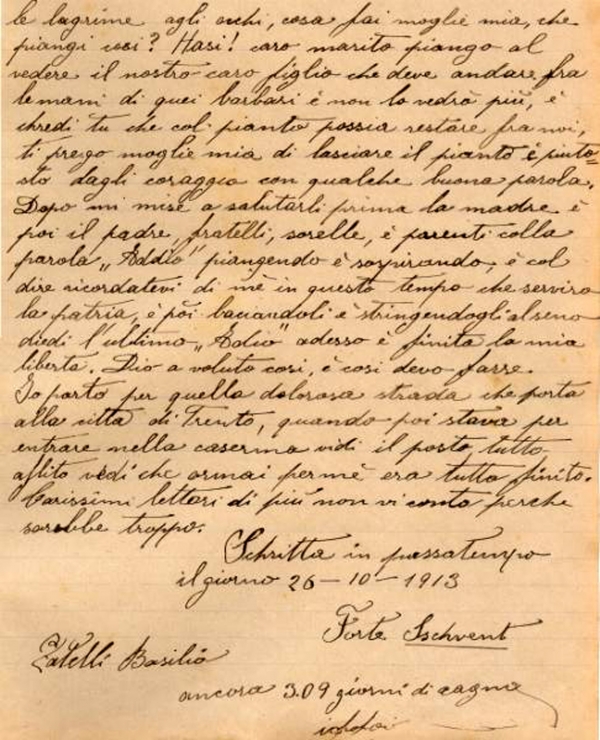 le lagrime agli occhi, cosa fai moglie mia, che
piangi cosi? Hasi! caro marito piango al
vedere il nostro caro figlio che deve andare fra
le mani di quei barbari è non lo vedrò più, è
chredi tu che col pianto possia restare fra noi,
ti prego moglie mia di lasciare il pianto è piuto=
sto dagli coraggio con qualche buona parola.
Dopo mi mise a salutarli prima la madre è
poi il padre, fratelli, sorelle, è parenti colla
parola „Addio" piangendo è sospirando, è col
dire ricordatevi di mè in questo tempo che serviro
la patria, è pòi baciandoli è stringendogli al seno
diedi l'ultimo „Adio" adesso è finita la mia
libertà. Dio a voluto cosi, è cosi devo farre.
Io parto per quella dolorosa strada che porta
alla città di Trento, quando poi stava per
entrare nella caserma vidi il posto tutto
aflito vedi che ormai permè era tutto finito.
Carissimi lettori di più non vi conto perche
sarebbe troppo.
Schritta in passatempo
il giorno 26-10-1913
Forte Sschvent
Zatelli Basilio
ancora 309 giorni di cagna